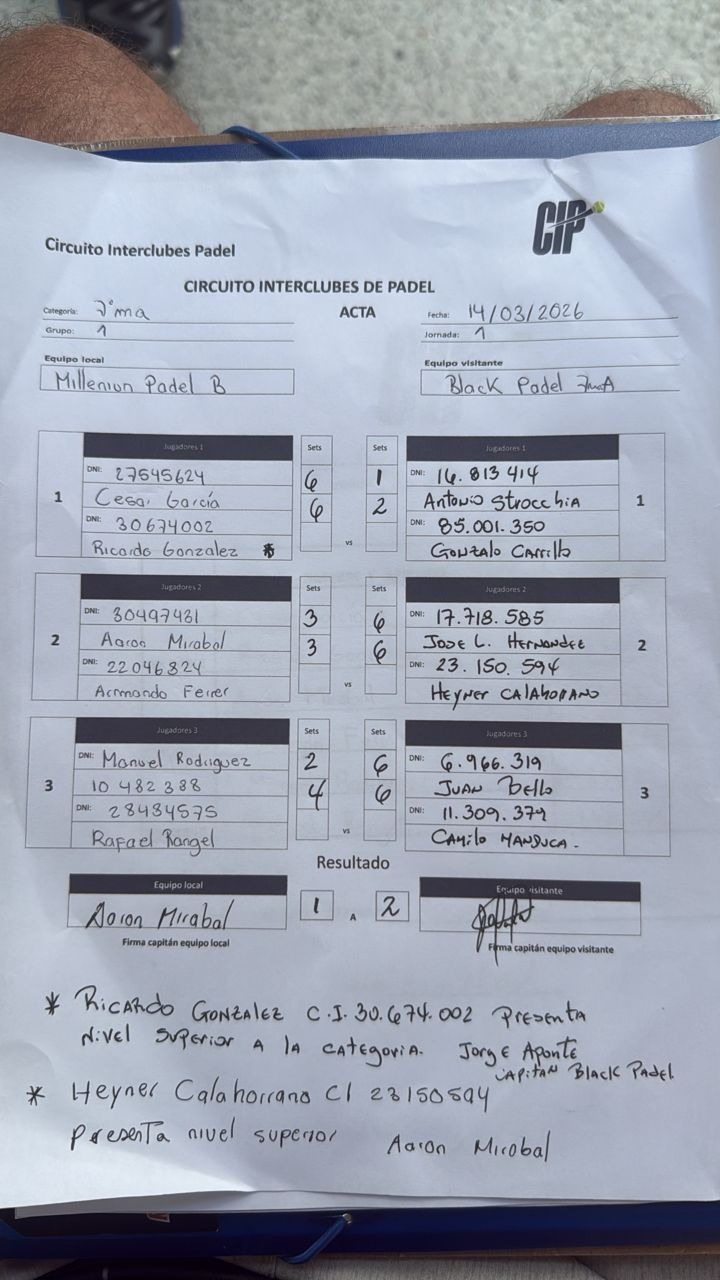 CIP
Circuito Interclubes Padel
CIRCUITO INTERCLUBES DE PADEL
Categoría: 7ma ACTA Fecha: 14/03/2026
Grupo: 1 Jornada: 1
Equipo local Equipo visitante
Millenion Padel B Black Padel 7mA
Jugadores 1 Sets Sets Jugadores 1
DNI: 27545624 6 1 DNI: 14.813 414
Cesar García 6 2 Antonio Strocchia
1 1
DNI: 30674002 DNI: 85.001.350
Ricardo Gonzalez * vs Gonzalo Carrillo
Jugadores 2 Sets Sets Jugadores 2
DNI: 30497431 3 6 DNI: 17.718.585
Aaron Mirabal 3 6 Jose L. Hernandez
2 2
DNI: 22046824 DNI: 23.150.594
Armando Ferrer vs Heyner Calahorrano
Jugadores 3 Sets Sets Jugadores 3
DNI: Manuel Rodriguez 2 6 DNI: 6.966.319
3 10 482 388 4 6 Juan Bello 3
DNI: 28484575 DNI: 11.309.379
Rafael Rangel vs Camilo Manduca.
Resultado
Equipo local Equipo visitante
Aaron Mirabal 1 A 2
Firma capitán equipo local Firma capitán equipo visitante
* Ricardo Gonzalez C.I. 30.674.002 Presenta
Nivel superior a la categoria. Jorge Aponte
Capitan Black Padel
* Heyner Calahorrano CI 23150594
Presenta nivel superior Aaron Mirabal